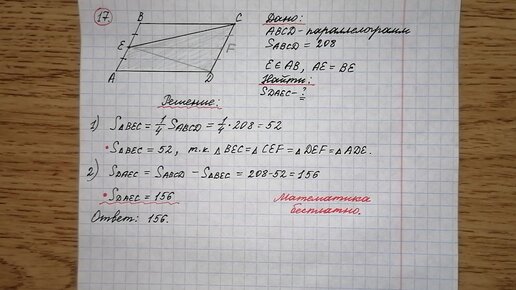 17
B
C
E
F
A
D
Дано:
ABCD - параллелограмм
S_ABCD = 208
E ∈ AB, AE = BE
Найти:
S_DAEC - ?
Решение:
1) S_△BEC = 1/4 S_ABCD = 1/4 · 208 = 52
• S_△BEC = 52, т.к. △BEC = △CEF = △DEF = △ADE.
2) S_DAEC = S_ABCD - S_△BEC = 208 - 52 = 156
• S_DAEC = 156
Ответ: 156.
Математика
бесплатно.